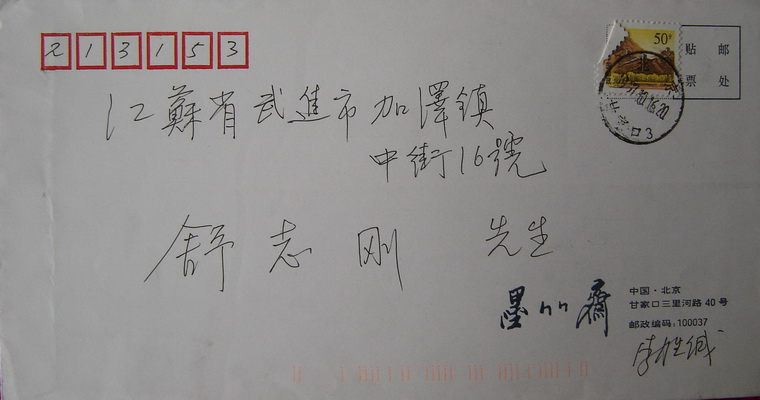 213153
50分
贴 邮
票 处
江蘇省武進市加澤鎮
中街16號
舒志刚 先生
中国·北京
甘家口三里河路40号
邮政编码:100037